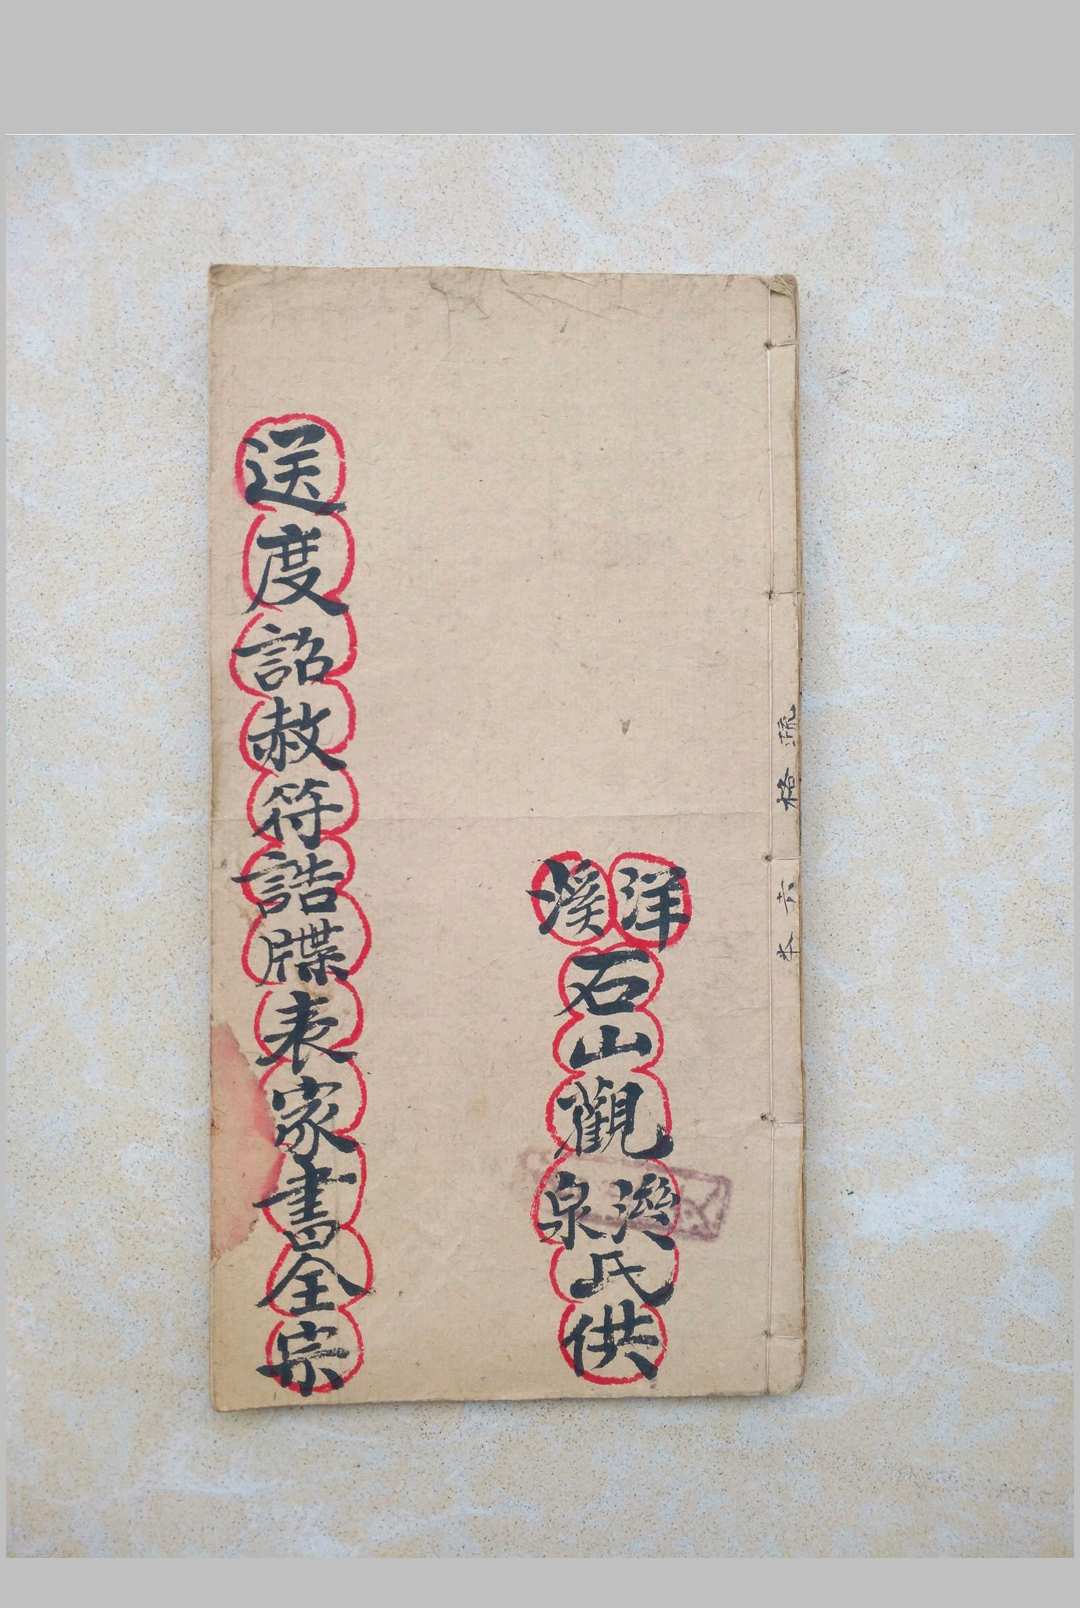 疏格六本
洋溪石山觀泉氏供
送度詔赦符誥牒表家書全宗